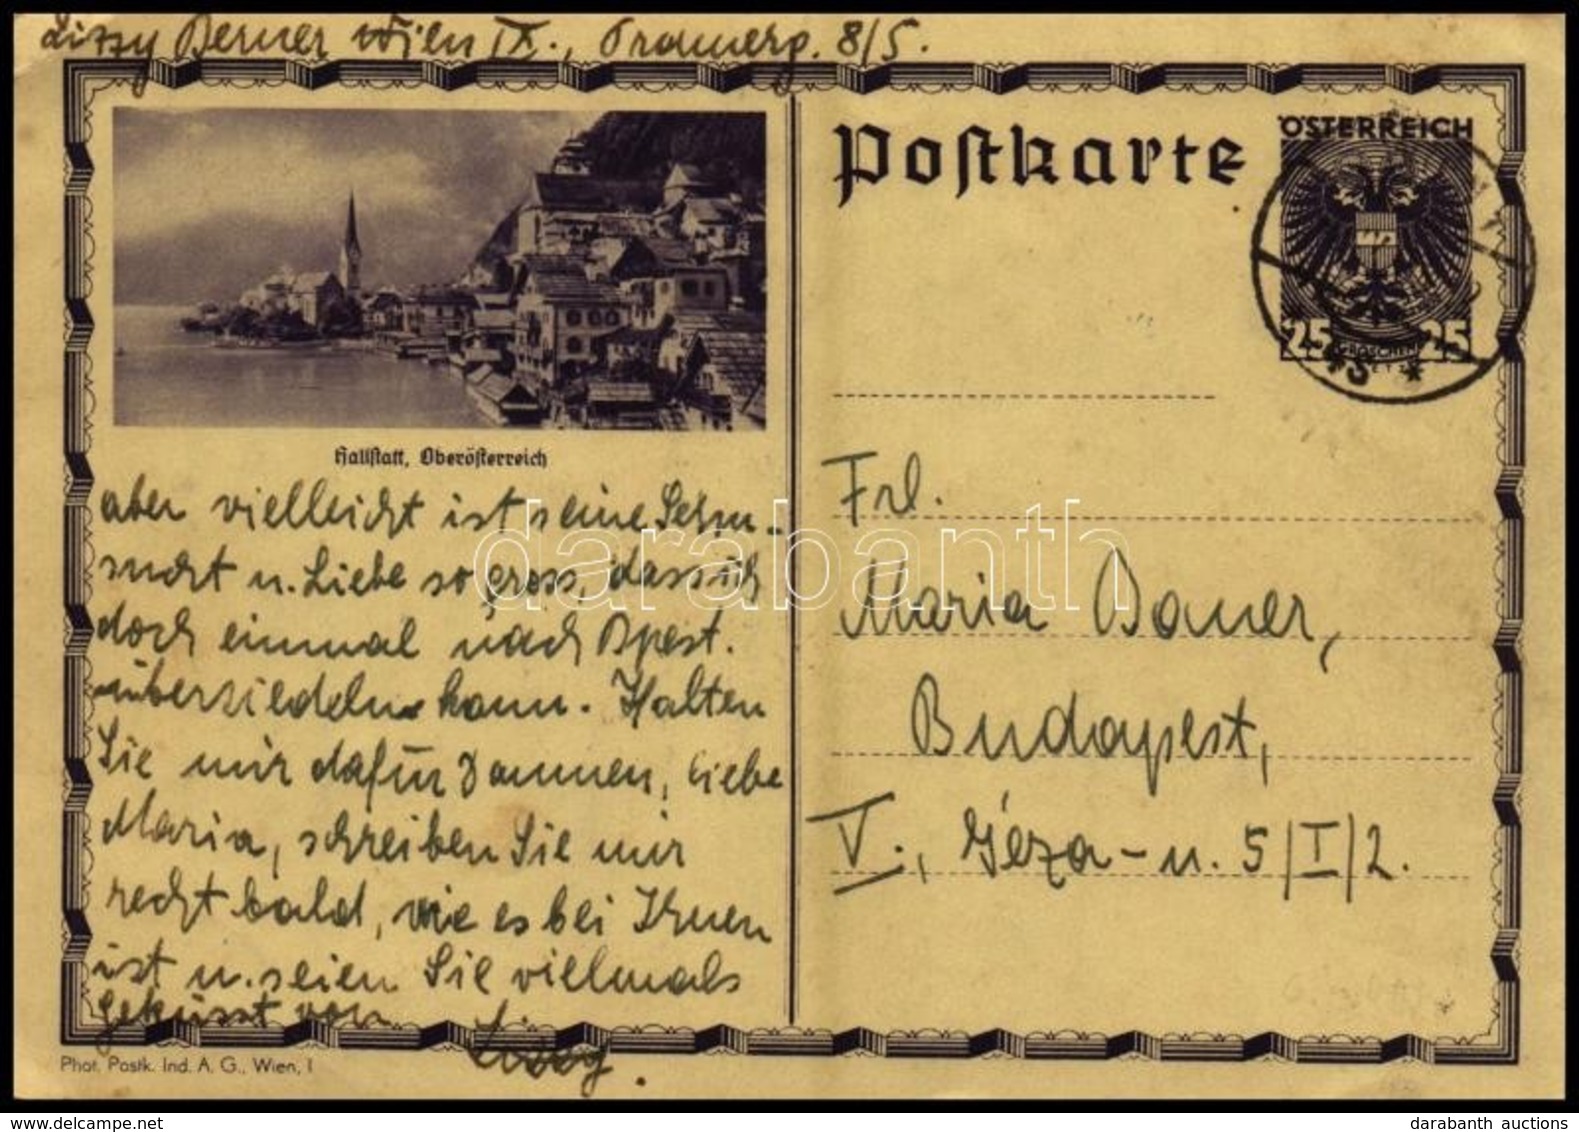 Lizzy Berner Wien IX., Pramerg. 8/5.
Postkarte
ÖSTERREICH
25 GROSCHEN 25
Hallstatt, Oberösterreich
aber vielleicht ist seine Sehn-
sucht u. Liebe so gross, dass ich
doch einmal nach Bpest.
übersiedeln kann. Halten
Sie mir dafür Daumen, liebe
Maria, schreiben Sie mir
recht bald, wie es bei Ihnen
ist u. seien Sie vielmals
geküsst von
Lizzy.
Frl.
Maria Bauer,
Budapest,
V., Géza-u. 5/I/2.
Phot. Postk. Ind. A. G., Wien, I
darabanth
darabanth auctions
delcampe.net